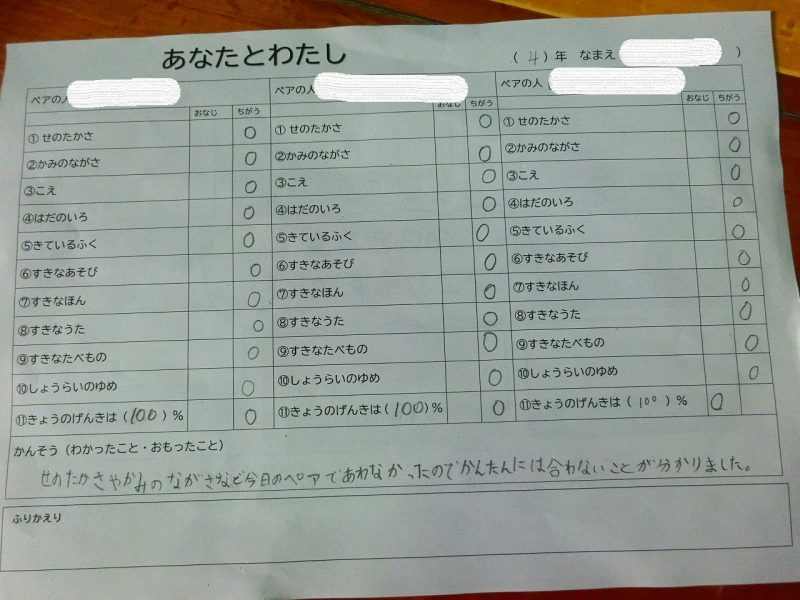 あなたとわたし
(4)年 なまえ )
ペアの人 ペアの人 ペアの人(
おなじ ちがう おなじ ちがう おなじ ちがう
①せのたかさ ○ ①せのたかさ ○ ①せのたかさ ○
②かみのながさ ○ ②かみのながさ ○ ②かみのながさ ○
③こえ ○ ③こえ ○ ③こえ ○
④はだのいろ ○ ④はだのいろ ○ ④はだのいろ ○
⑤きているふく ○ ⑤きているふく ○ ⑤きているふく ○
⑥すきなあそび ○ ⑥すきなあそび ○ ⑥すきなあそび ○
⑦すきなほん ○ ⑦すきなほん ○ ⑦すきなほん ○
⑧すきなうた ○ ⑧すきなうた ○ ⑧すきなうた ○
⑨すきなたべもの ○ ⑨すきなたべもの ○ ⑨すきなたべもの ○
⑩しょうらいのゆめ ○ ⑩しょうらいのゆめ ○ ⑩しょうらいのゆめ ○
⑪きょうのげんきは(100)% ○ ⑪きょうのげんきは(100)% ○ ⑪きょうのげんきは(100)% ○
かんそう(わかったこと・おもったこと)
せのたかさやかみのながさなど今日のペアであわなかったのでかんたんには合わないことが分かりました。
ふりかえり